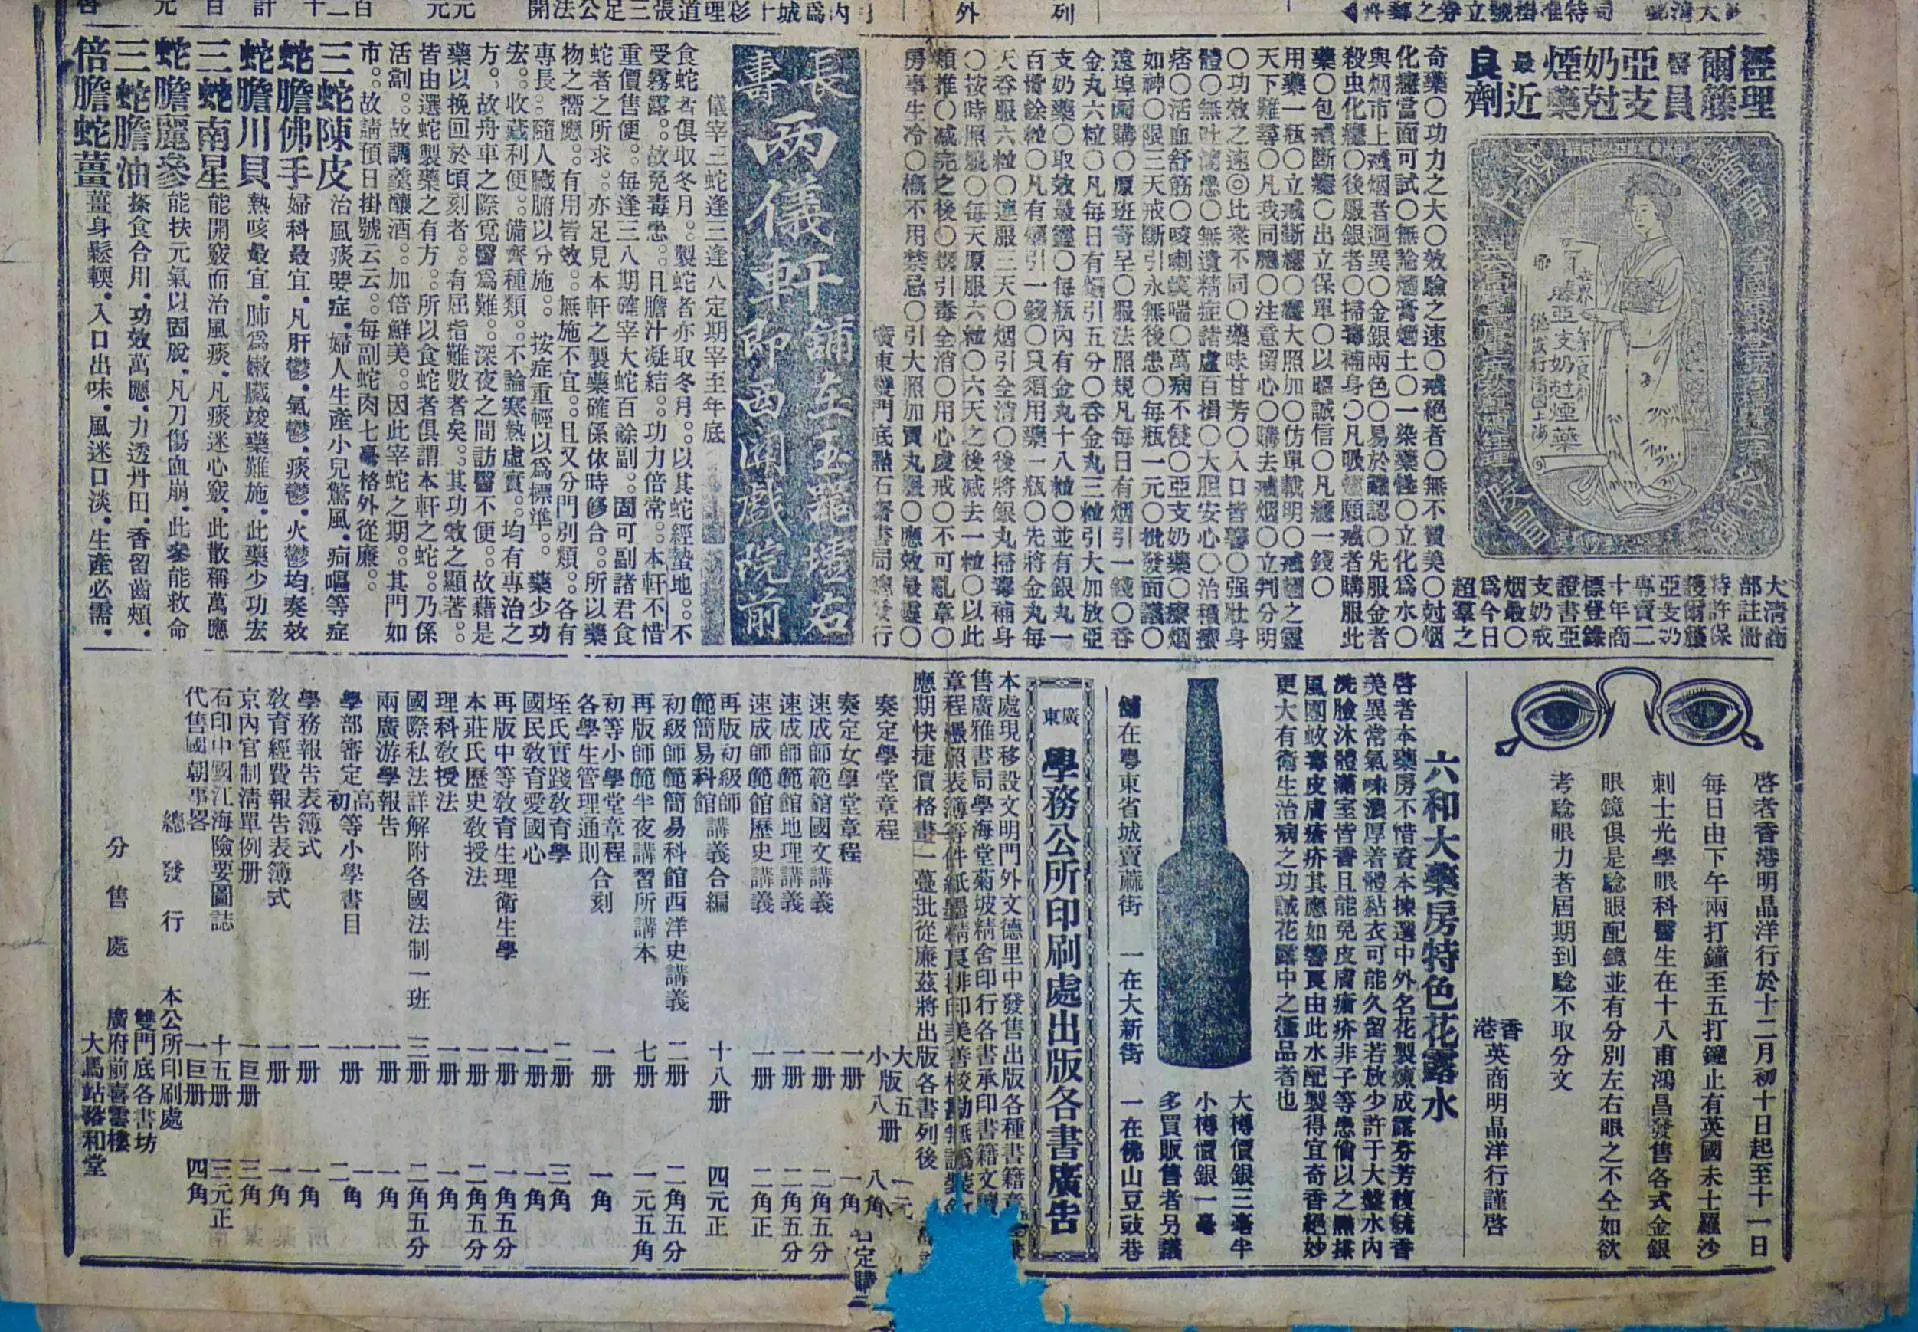 經理
爾籐
醫員
亞支
奶尅
煙藥
最近
良劑
亞支奶尅煙藥
大清商
部註冊
特許保
護爾籐
亞支奶
專賣二
十年商
標登錄
證書亞
支奶戒
烟最〇
爲今日
超羣之
奇藥〇功力之大〇效驗之速〇戒絕者〇無不贊美〇尅烟
化癮當面可試〇無論烟膏烟土〇一染藥性〇立化爲水〇
與烟市上戒烟者迥異〇金銀兩色〇易於認〇先服金者
殺虫化癮〇後服銀者〇掃毒補身〇凡吸烟願戒者購服此
藥〇包戒斷癮〇出立保單〇以昭誠信〇凡癮一錢〇
用藥一瓶〇立戒斷癮〇癮大照加〇仿單載明〇戒烟之靈
天下難尋〇凡我同胞〇注意留心〇購去戒烟〇立判分明
〇功效之速◎比衆不同〇藥味甘芳〇入口皆馨〇强壯身
體〇無吐瀉患〇無遺精症諸虛百損〇大胆安心〇治積瘀
痞〇活血舒筋〇咳喇痰喘〇萬病不侵〇亞支奶藥〇療烟
如神〇限三天戒斷引永無後患〇每瓶一元〇批發面議〇
遠埠函購〇原班寄呈〇服法照規凡每日有烟引一錢〇吞
金丸六粒〇凡每日有烟引五分〇吞金丸三粒引大加放亞
支奶藥〇取效最靈〇每瓶內有金丸十八粒〇並有銀丸一
百十餘粒〇凡有烟引一錢〇只須用藥一瓶〇先將金丸每
天吞服六粒〇連服三天〇烟引全清〇後將銀丸掃毒補身
〇按時照服〇每天原服六粒〇六天之後减去一粒〇以此
類推〇减完之後〇烟引毒全消〇用心處戒〇不可亂章〇
房事生冷〇概不用禁忌〇引大照加買丸服〇應效最靈〇
廣東雙門底點石齋書局總發行
長壽
兩儀軒
舖在玉器墟右
即西關戲院前
儀宰三蛇逢三逢八定期宰至年底
食蛇者俱取冬月。製蛇者亦取冬月。以其蛇經蟄地。不
受霧露。故免毒患。且膽汁凝結。功力倍常。本軒不惜
重價售便。每逢三八期確宰大蛇百餘副。固可副諸君食
蛇者之所求。亦足見本軒之製藥確係依時修合。所以藥
物之嚮應。有用皆效。無施不宜。且又分門別類。各有
專長。隨人臟腑以分施。按症重輕以爲標準。藥少功
宏。收藏利便。備齊種類。不論寒熱虛實。均有專治之
方。故舟車之際覓醫爲難。深夜之間訪醫不便。故藉是
藥以挽回於頃刻者。有屈指難數者矣。其功效之顯著。
皆由選蛇製藥之有方。所以食蛇者俱謂本軒之蛇。乃係
活劏。故調羹釀酒。加倍鮮美。因此宰蛇之期。其門如
市。故請預日掛號云云。每副蛇肉七毫格外從廉。
三蛇陳皮 治風痰嬰症。婦人生產小兒驚風。疴嘔等症
蛇膽佛手 婦科最宜。凡肝鬱。氣鬱。痰鬱。火鬱均奏效
蛇膽川貝 熱咳最宜。肺爲嫩臟峻藥難施。此藥少功宏
三蛇南星 能開竅而治風痰。凡痰迷心竅。此散稱萬應
蛇膽麗參 能扶元氣以固脫。凡刀傷血崩。此參能救命
三蛇膽油 搽食合用。功效萬應。力透丹田。香留齒頰。
倍膽蛇薑 薑身鬆輭。入口出味。風迷口淡。生產必需。
啓者香港明晶洋行於十二月初十日起至十一日
每日由下午兩打鐘至五打鐘止有英國未士羅沙
刺士光學眼科醫生在十八甫鴻昌發售各式金銀
眼鏡俱是騐眼配鏡並有分別左右眼之不仝如欲
考騐眼力者屆期到騐不取分文
香港英商明晶洋行謹啓
六和大藥房特色花露水
啓者本藥房不惜資本揀選中外名花製煉成露芬芳馥郁香
美異常氣味濃厚着體黏衣可能久留若放少許于大盤水內
洗臉沐體滿室皆香且能免皮膚瘡疥非子等患倘以之無搽
風團蚊毒皮膚瘡疥其應如響良由此水配製得宜奇香絕妙
更大有衛生治病之功誠花露中之極品者也
大樽價銀三毫半
小樽價銀一毫
多買販售者另議
舖在粵東省城賣蔴街 一在大新街 一在佛山豆豉巷
廣東學務公所印刷處出版各書廣告
本處現移設文明門外文德里中發售出版各種書籍
售廣雅書局學海堂菊坡精舍印行各書承印書籍文
章程憑照表簿等件紙墨精良排印美善校勘無訛
應期快捷價格畫一躉批從廉茲將出版各書列後
奏定學堂章程 大版五 小版八册 一元 八角
奏定女學堂章程 一册 一角
速成師範館國文講義 一册 二角五分
速成師範館地理講義 一册 二角五分
速成師範館歷史講義 一册 二角正
再版初級師範簡易科館講義合編 十八册 四元正
初級師範簡易科館西洋史講義 二册 二角五分
再版師範半夜講習所講本 七册 一元五角
初等小學堂章程
各學生管理通則合刻 一册 一角
垤氏實踐教育學 二册 三角
國民教育愛國心 一册 一角
再版中等教育生理衛生學 一册 一角五分
本莊氏歷史教授法 一册 二角五分
理科教授法 一册 一角
國際私法詳解附各國法制一班 三册 二角五分
兩廣游學報告 一册 一角
學部審定高初等小學書目 一册 一角
學務報告表簿式 一册 一角
教育經費報告表簿式 一册 一角
京內官制清單例册 一巨册 三角
石印中國江海險要圖誌 十五册 三元正
代售國朝事畧 一巨册 四角
總發行 本公所印刷處
分售處 雙門底各書坊
廣府前喜雲樓
大馬站啓和堂